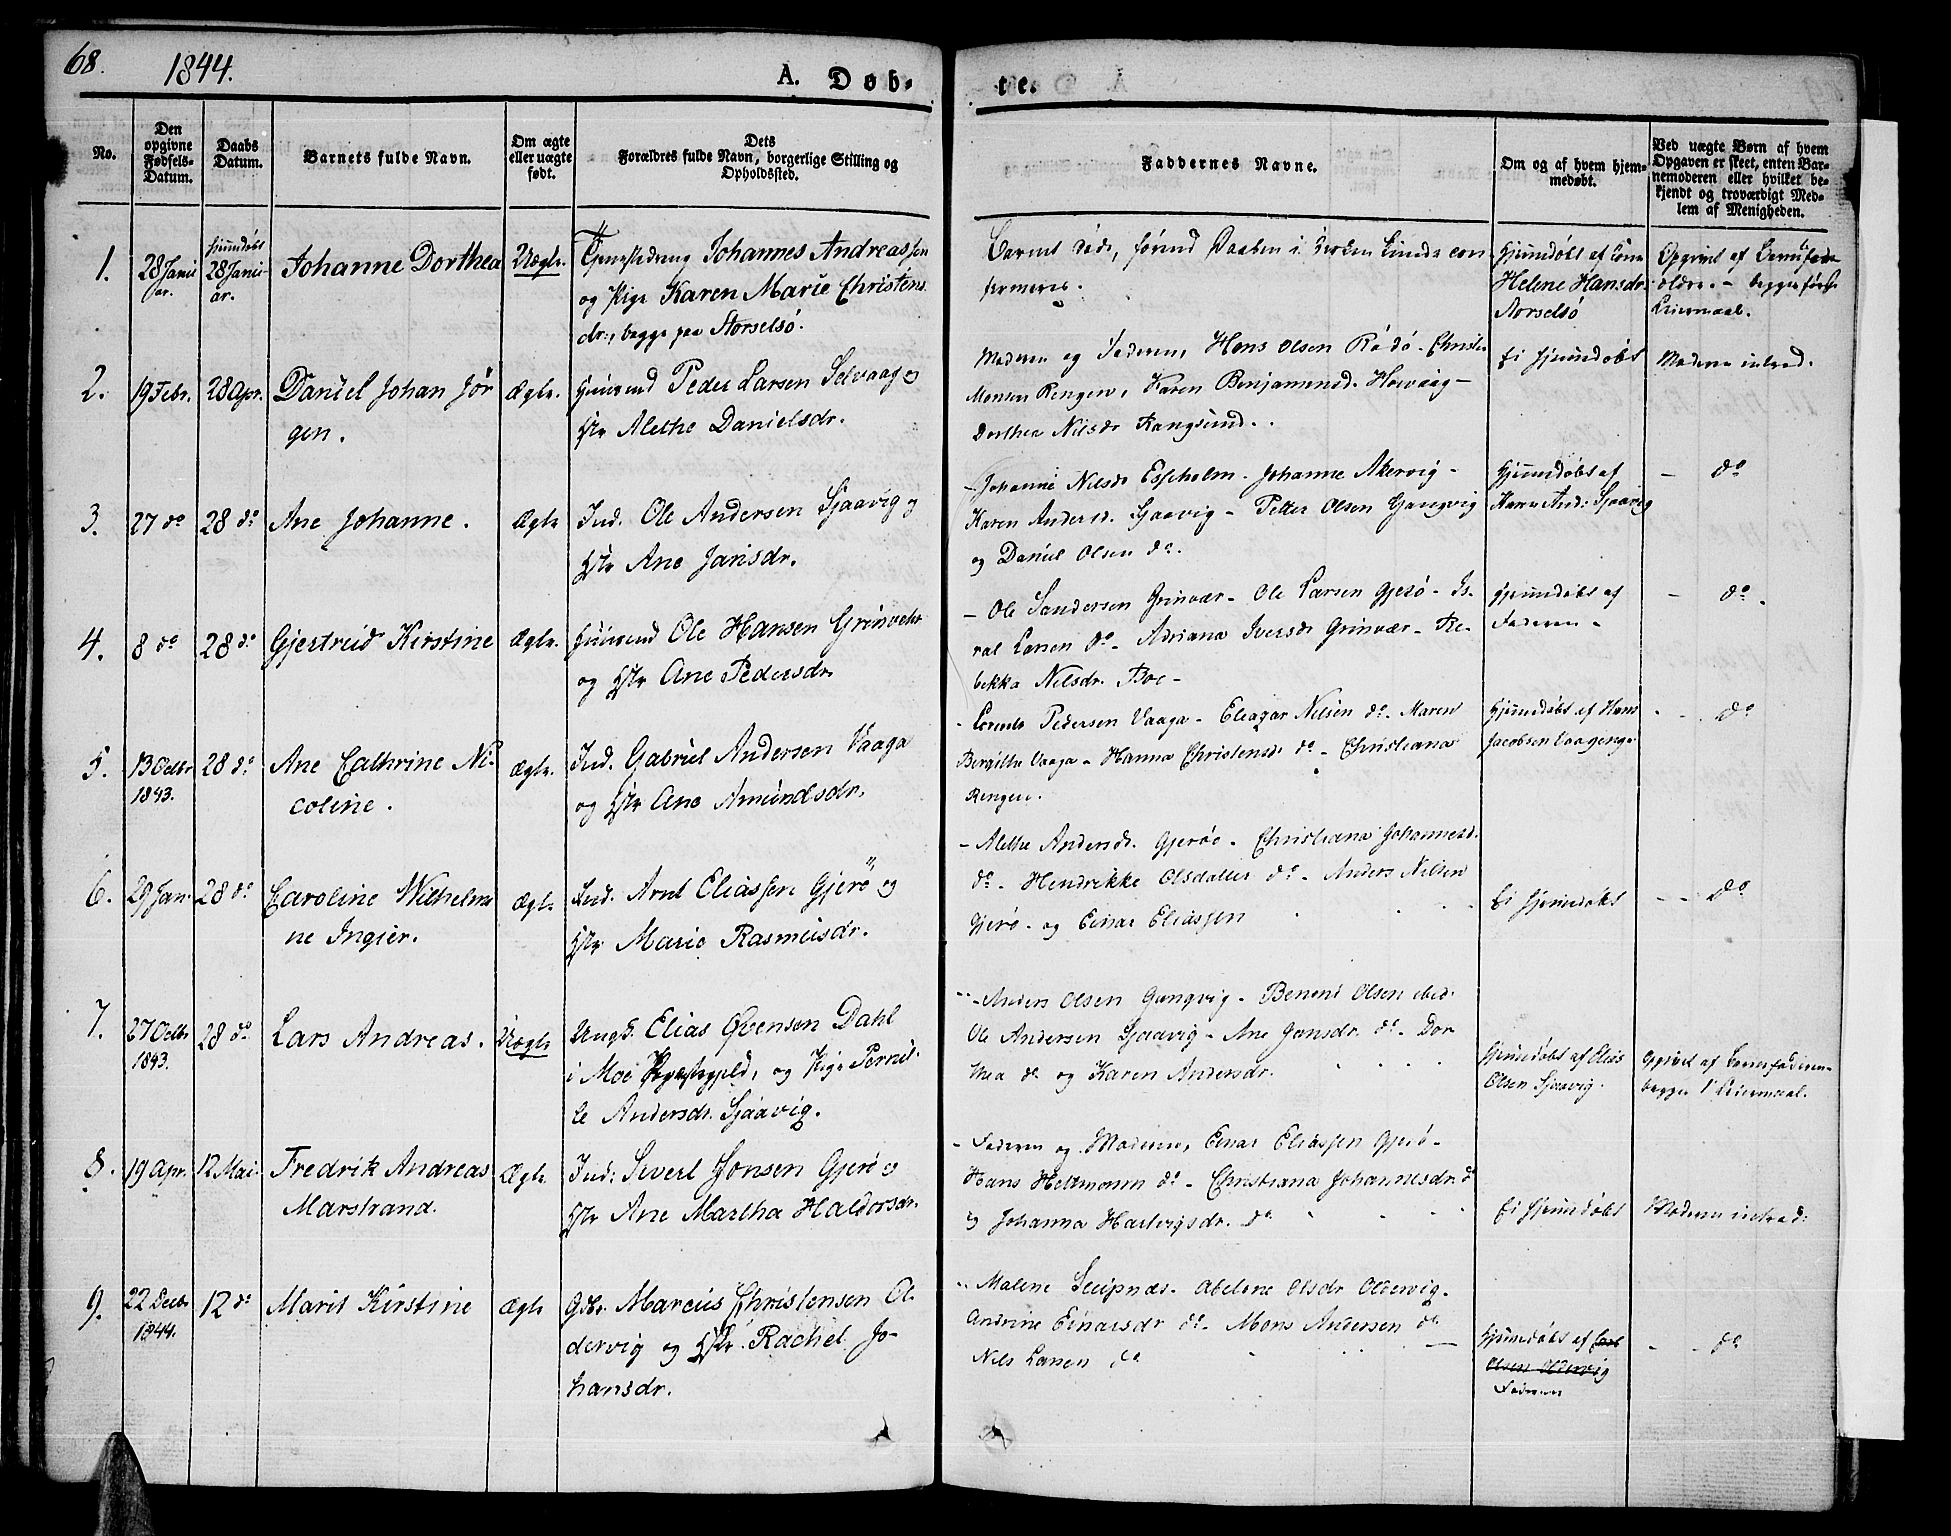 68.
1844.
A. Døb-
te.
No.
Den
opgivne
Fødsels-
Datum.
Daabs
Datum.
Barnets fulde Navn.
Om ægte
eller uægte
født.
Dets
Forældres fulde Navn, borgerlige Stilling og
Opholdssted.
Faddernes Navne.
Om og af hvem hjem-
medøbt.
Ved uægte Børn af hvem
Opgaven er skeet, enten Bar-
nemoderen eller hvilket be-
kjendt og troværdigt Med-
lem af Menigheden.
1.
28 Janu
ar.
hjemdøbt
28 Janu
ar.
Johanne Dorthea
Uægte.
Tjenestedreng Johannes Andreassen
og Pige Karen Marie Christens
dr., begge paa Storselsö.
Barnet døde, førend Daaben i Kirken kunde con
firmeres.
hjemdøbt af
Helene Hansdr.
Norselsö
Opgivet af Barnefor-
ældre. - begges første
Leiermaal.
2.
19 Febr.
28 Apr.
Daniel Johan Jör
gen.
Ægte.
Huusmand Peder Larsen Selvaag og
Hstr Alethe Danielsdr.
Moderen og Faderen, Hans Olsen Rödö - Christen
Monsen Rengen, Karen Benjaminsd. Horvaag -
Dorthea Nilsdr Kangsund.
Ei hjemdøbt
Moderen introd.
3.
27 do
28 do
Ane Johanne.
Ægte
Ind. Ole Andersen Sjaavig og
Hstr Ane Jansdr.
- Johanne Nilsdr Esseholm - Johanne Akervig -
Karen Andersd. Sjaavig - Petter Olsen Gangvig
og Daniel Olsen do.
hjemdøbt af
Karen And: Sjaavig
- do
4.
8 do
28 do
Gjertreid Kirstine
Ægte.
Huusmand Ole Hansen Grinvehr
og Hstr Ane Pedersdr.
- Ole Sandersen Grinvær - Ole Larsen Gjerö - Is-
rael Larsen do - Adriana Iversdr Grinvær - Re-
bekka Nilsdr. Boe -
hjemdøbt af
Faderen -
- do -
5.
13 Octbr
1843.
28 do
Ane Cathrine Ni-
coline.
Ægte.
Ind. Gabriel Andersen Vaaga
og Hstr Ane Amundsdr.
- Lorents Pedersen Vaaga - Eleazar Nilsen do - Maren
Bergitte Vaaga - Hanna Christensdr do - Christiana
Rengen.
hjemdøbt af Hans
Jacobsen Vaageng.
- - do
6.
29 Jan.
28 do
Caroline Wilhelmi
ne Ingier.
Ægte
Ind. Arnt Eliassen Gjerö og
Hstr Marie Rasmusdr.
- Alethe Andersdr. Gjeröe - Christiana Johannesd.
do - Hendrikke Olsdatter do - Anders Nilsen
Gjerö - og Einar Eliassen
Ei hjemdøbt
- - do
7.
27 Octbr
1843.
28 do
Lars Andreas.
Uægte
Ungk. Elias Øvensen Dahl
i Moe Præstegjeld, og Pige Pernil-
le Andersdr. Sjaavig.
- Anders Olsen Gangvig - Benoni Olsen ibid.
Ole Andersen Sjaavig - Ane Jansdr. do - Dor
thea do og Karen Andersdr.
hjemdøbt af Elias
Olsen Sjaavig.
Opgivet af Barnefaderen
begges 1' Leiermaal.
8.
19 Apr.
12 Mai
Fredrik Andreas
Marstrand.
Ægte
Ind: Sivert Jonsen Gjerö og
Hstr Ane Martha Haldorsdr.
- Faderen og Moderen, Einar Eliassen Gjerö -
Hans Heltmann do - Christiana Johannesdr. do
og Johanna Hartvigsdr. do
Ei hjemdøbt
Moderen introd:
9.
22 Decbr
1844.
12 do
Marit Kirstine
Ægte
Gdbr. Marcus Christensen Ol-
dervig og Hstr. Rachel Jo-
hansdr.
- Malene Leipnæs - Abelone Olsdr Oldervig.
Andrine Einarsdr do - Mons Andersen do
Nils Larsen do
hjemdøbt af
Olsen Oldervig
Faderen
- - do